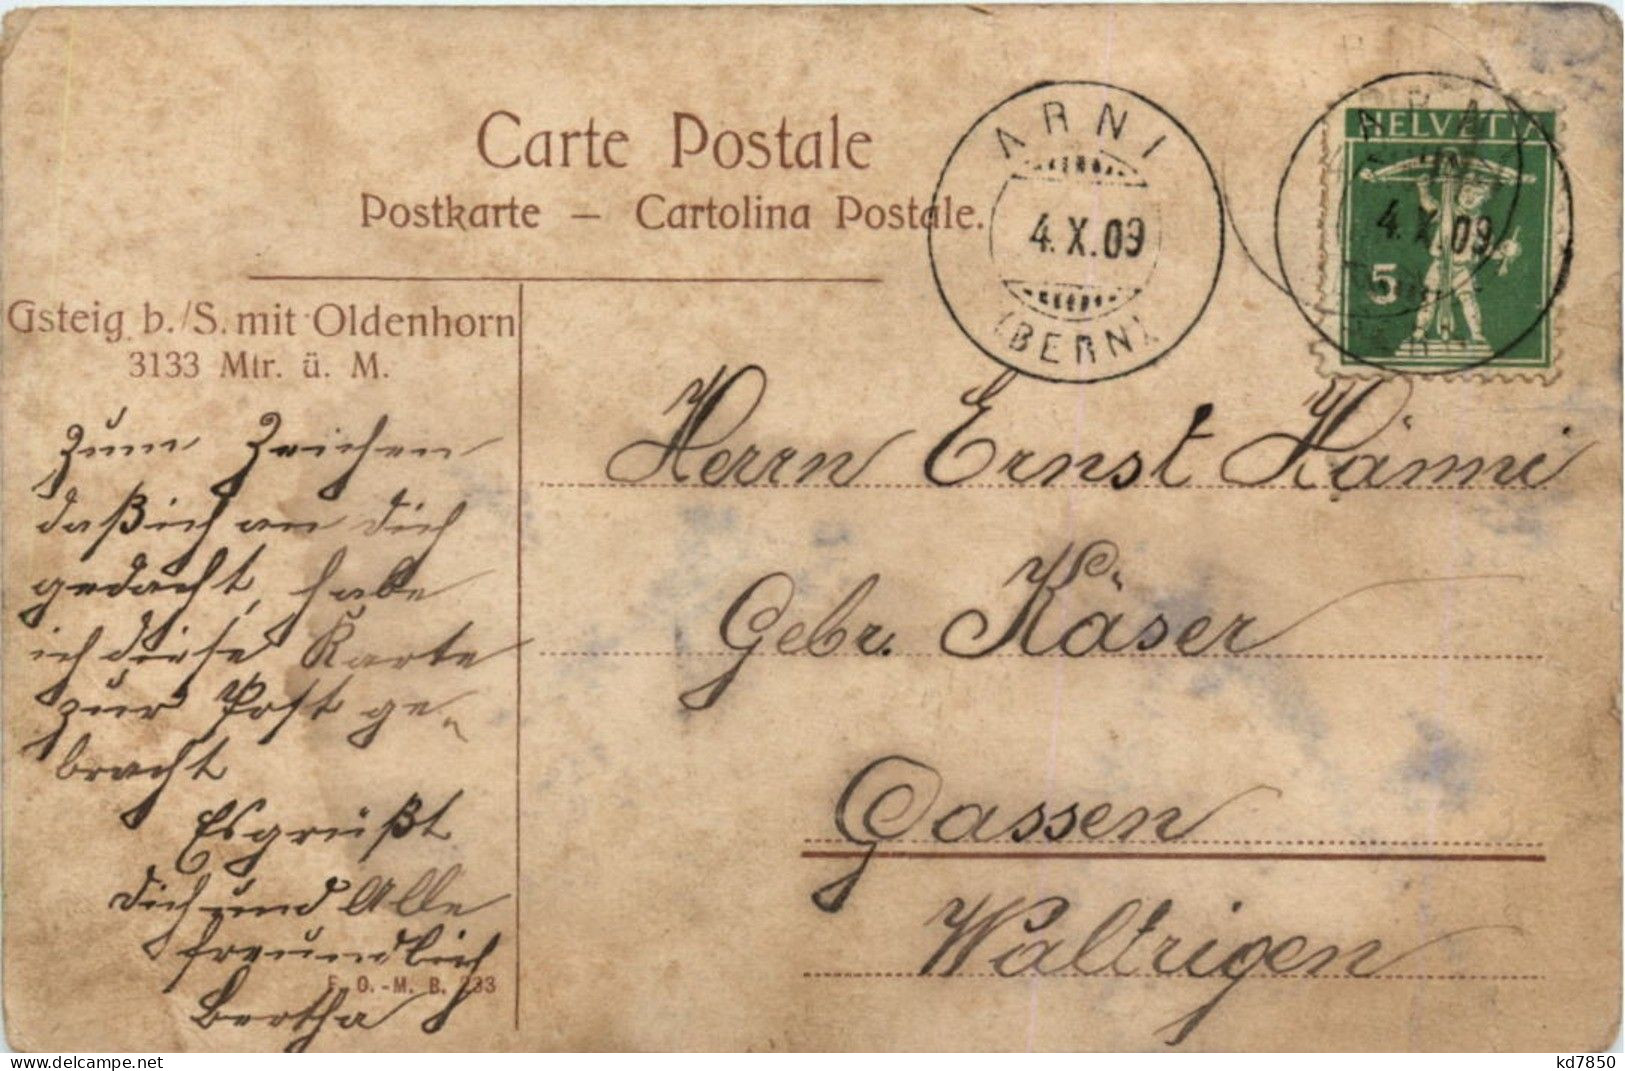 Carte Postale
Postkarte – Cartolina Postale.
ARNI
4.X.09
(BERN)
HELVETIA
4.X.09
5
Gsteig b./S. mit Oldenhorn
3133 Mtr. ü. M.
Zum Zeichen
daß ich an dich
gedacht, habe
ich diese Karte
zur Post ge-
bracht
Es grüßt
dich und Alle
freundlich
Bertha
E. O.-M. B. 233
Herrn Ernst Hänni
Gebr. Käser
Gassen
Waltrigen
www.delcampe.net
kd7850